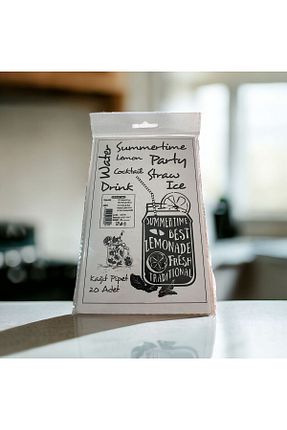 Water
Summertime
Lemon Party
Cocktail Straw
Drink Ice
SUMMERTIME
BEST
LEMONADE
FRESH
TRADITIONAL
Kağıt Pipet
20 Adet